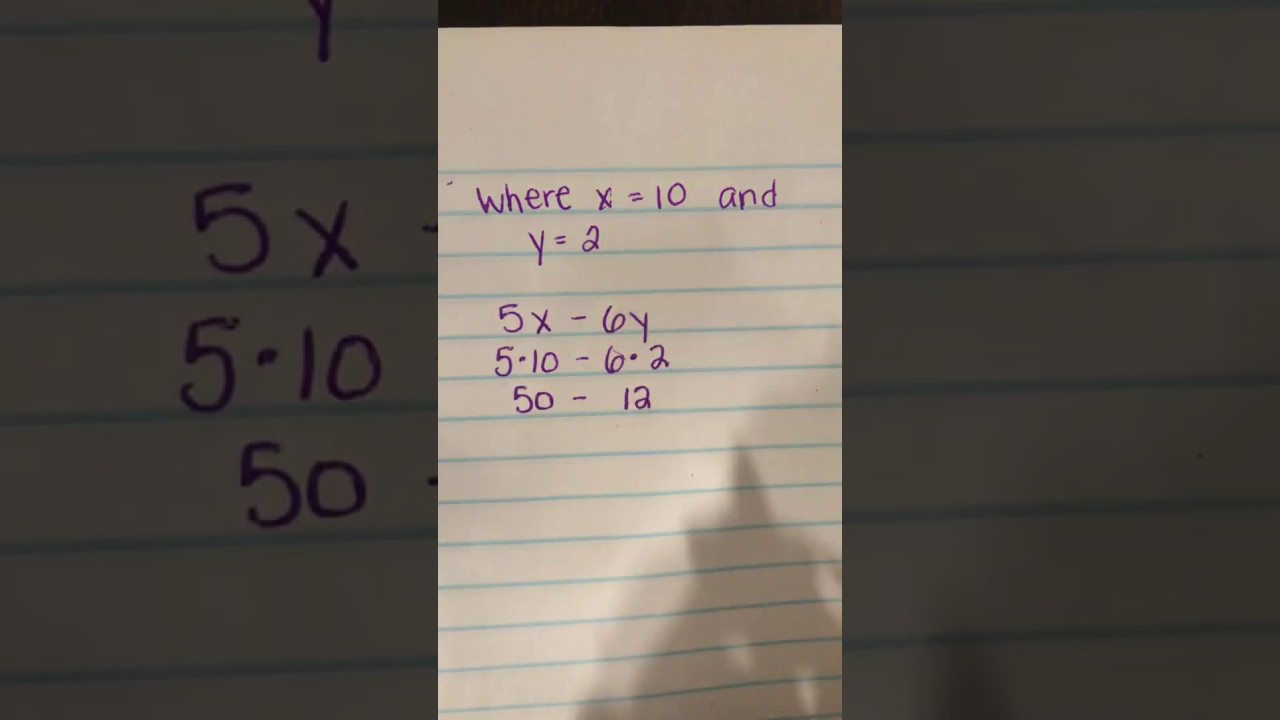 where x = 10 and
y = 2
5x - 6y
5·10 - 6·2
50 - 12